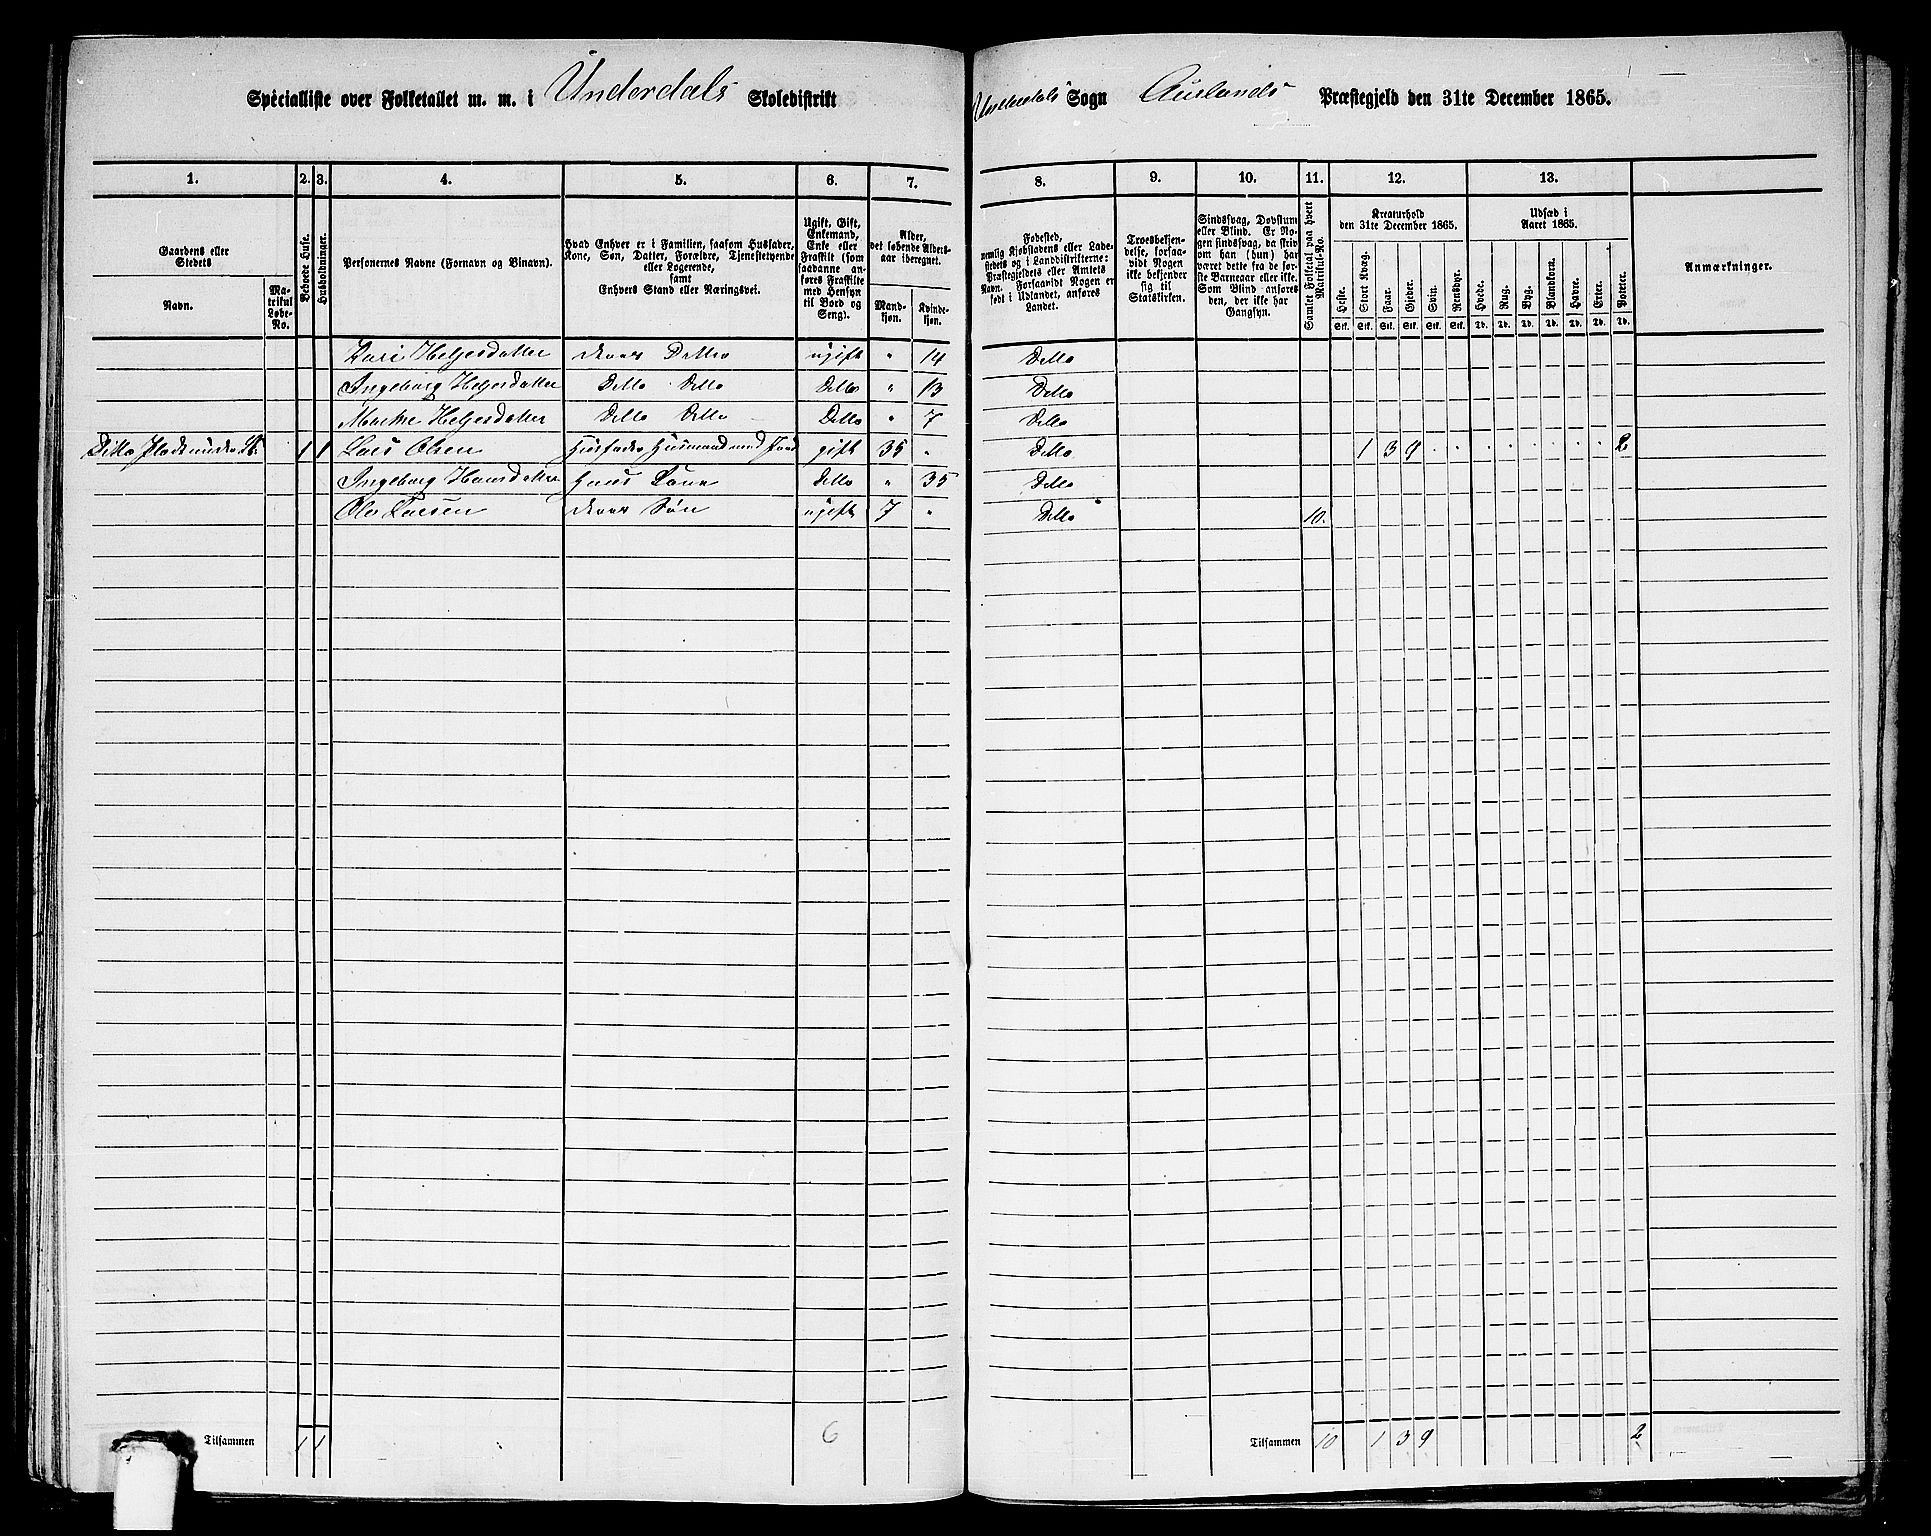 Specialliste over Folketallet m. m. i Underdals Skoledistrikt Underdals Sogn Aurlands Præstegjeld den 31te December 1865.
1. 2. 3. 4. 5. 6. 7. 8. 9. 10. 11. 12. 13.
Gaardens eller Stedets
Navn.
Matrikul Løbe-No.
Beboede Huse.
Husholdninger.
Personernes Navne (Fornavn og Binavn).
Hvad Enhver er i Familien, saasom Husfader, Kone, Søn, Datter, Forældre, Tjenestetyende eller Logerende,
samt
Enhvers Stand eller Næringsvei.
Ugift, Gift, Enkemand, Enke eller Fraskilt (som saadanne anføres Fraskilte med Hensyn til Bord og Seng).
Alder, det løbende Aldersaar iberegnet.
Mandkjøn.
Kvindekjøn.
Fødested, nemlig Kjøbstadens eller Ladestedets og i Landdistrikterne: Præstegjeldets eller Amtets Navn. Forsaavidt Nogen er født i Udlandet, anføres Landet.
Troesbekjendelse, forsaavidt Nogen ikke bekjender sig til Statskirken.
Sindssvag, Døvstum eller Blind. Er Nogen sindssvag, da skriv om han (hun) har været dette fra de første Barneaar eller ikke. Som Blind anføres den, der ikke har Gangsyn.
Samlet Folketal paa hvert Matrikul-No.
Kreaturhold den 31te December 1865.
Heste. Stort Kvæg. Faar. Gjeder. Svin. Rensdyr.
Stk. Stk. Stk. Stk. Stk. Stk.
Udsæd i Aaret 1865.
Hvede. Rug. Byg. Blandkorn. Havre. Erter. Poteter.
Td. Td. Td. Td. Td. Td. Td.
Anmærkninger.
Kari Helgesdatter deres Datter ugift " 14 Ditto
Ingeborg Helgesdatter Ditto Ditto Ditto " 13 Ditto
Marthe Helgesdatter Ditto Ditto Ditto " 7 Ditto
Ditto Plads under 1 1 Lars Olsen Husfader Husmand med Jord gift 35 " Ditto 1 3 9 2
Ingeborg Hansdatter hans Kone Ditto " 35 Ditto
Ole Larsen deres Søn ugift 7 " Ditto 10.
Tilsammen 1 1 6 Tilsammen 10 1 3 9 2